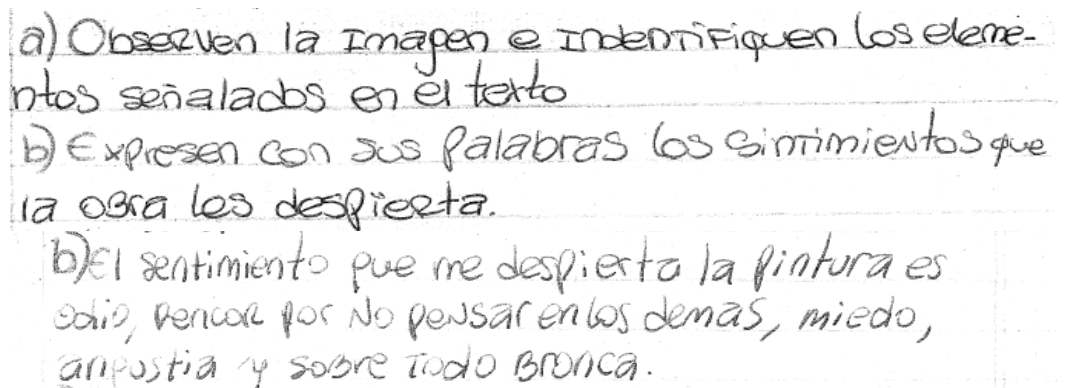 a) Observen la Imagen e Indentifiquen los eleme-
ntos señalados en el texto
b) Expresen con sus Palabras los sintimientos que
la obra les despierta.
b) El sentimiento que me despierta la pintura es
odio, rencor por no pensar en los demás, miedo,
angustia y sobre todo Bronca.